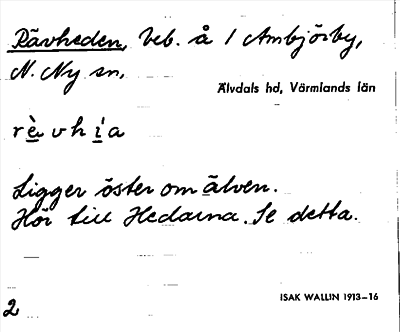 Rävheden, beb. å 1 Ambjörby,
N. Ny sn,
Älvdals hd, Värmlands län
rèvhía
Ligger öster om älven.
Hör till Hedarna. Se detta.
ISAK WALLIN 1913–16
2